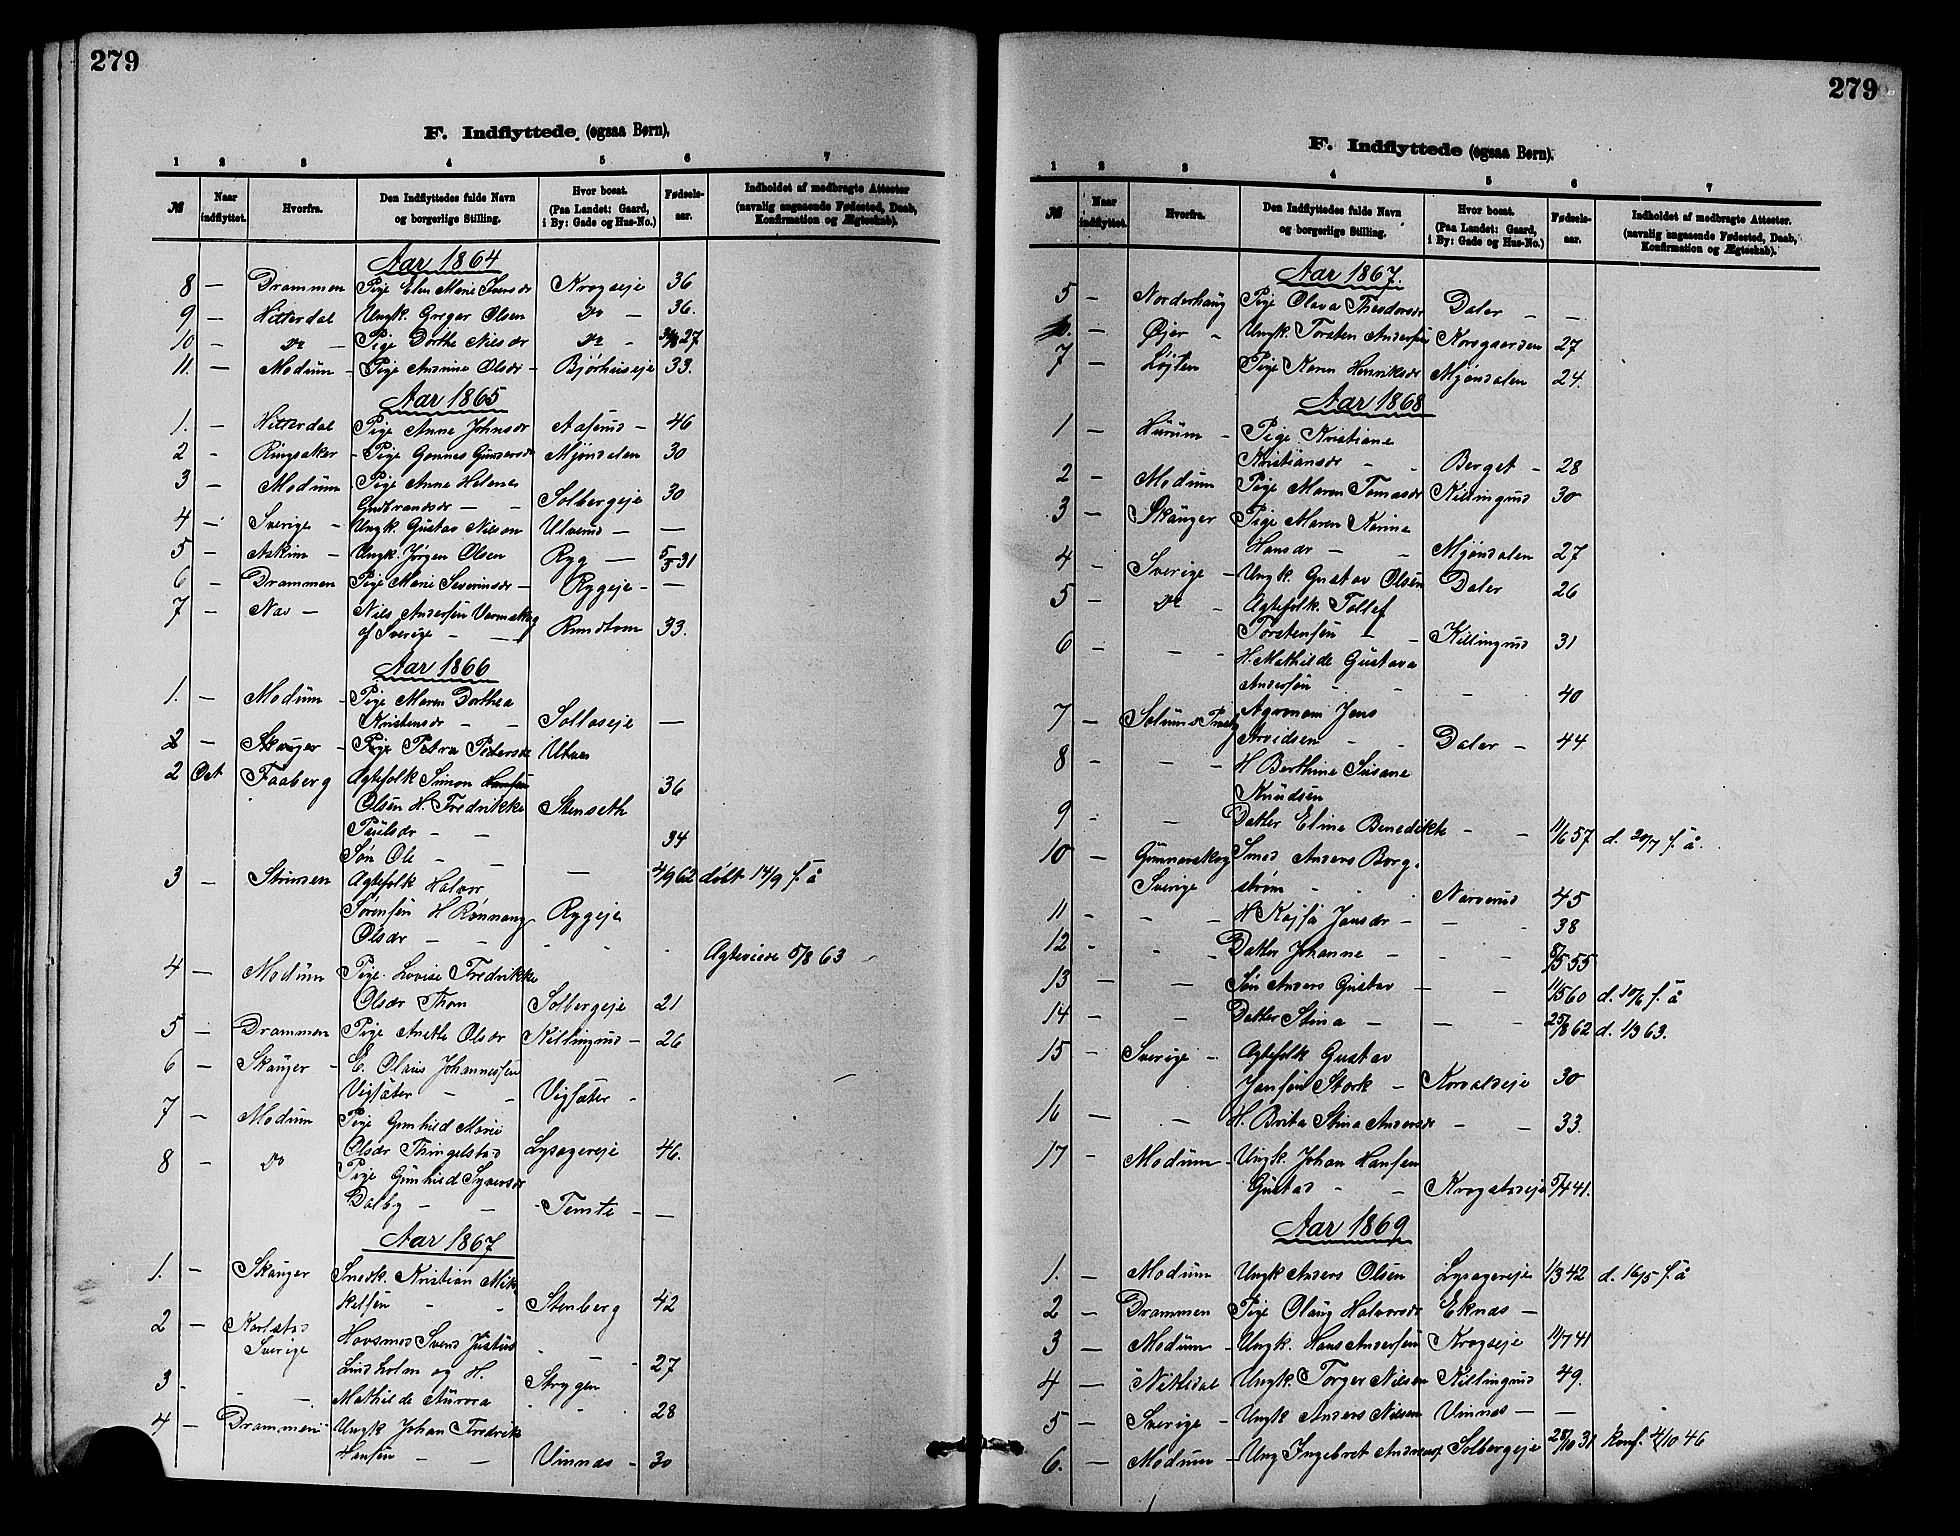 279
F. Indflyttede (ogsaa Børn).
1 2 3 4 5 6 7
№ Naar indflyttet. Hvorfra. Den Indflyttedes fulde Navn og borgerlige Stilling. Hvor bosat. (Paa Landet: Gaard, i By: Gade og Hus-No.) Fødsels-aar. Indholdet af medbragte Attester (navnlig angaaende Fødested, Daab, Konfirmation og Ægteskab).
Aar 1864
8 — Drammen Pige Elen Marie Iversdr Krogseje 36
9 — Hitterdal Ungk. Gregar Olsen Do — 36.
10 — Do — Pige Dorthe Nilsdr Do - 27
11. — Modum - Pige Andrine Olsdr - Bjørhuseje 33.
Aar 1865
1. — Hitterdal Pige Anne Johnsdr Aaserud - 46
2 - Ringsaker - Pige Gonnes Gundersdr Mjøndalen 30
3 — Modum Pige Anne Helene
Gudbrandsdr — - Solbergeje 30
4 — Sverige - Ungk. Gustav Nilson Ulverud — —
5 — Askim — Ungk. Jørgen Olsen Ryg — 5/5 31
6 — Drammen Pige Marie Severinsdr - Rygeje - —
7 — Nav — Nils Andersen Varmskog
af Sverige - — Rundtom 33.
Aar 1866
1. — Modum - Pige Maren Dorthea
Kristensdr - - Sollaseje —
2 — Skauger - Pige Petra Pedersdr Utnes
2 Oct Faaberg Ægtefolk Simon Hansen 36
Olsen H. Fredrikke Stenseth
Paulsdr - - 34
Søn Ole - - — 2/9 62 døbt 14/9 s. å
3 — Strømsen Ægtefolk Halvor
Sørensen H Rønnaug Rygeje
Olsdr - - - - - Ægteviede 5/8 63
4 — Modum Pige Lovise Fredrikke
Olsdr Thon Solbergeje 21
5 — Drammen Pige Anethe Olsdr Killingrud - 26
6 — Skauger - E. Olaus Johannessen
Vigsæter - - Vigsæter -
7 — Modum Pige Gunhild Marie
Olsdr Thingelstad Lysagereje 46.
8 — Do Pige Gunhild Syversdr
Dalby — - - Temte - —
Aar 1867
1. — Skauger Snedk. Kristian Mik
kelsen - - Stenberg 42
2 — Karlstad Hovsmed Svend Justus
Sverige - — - 27
3 - - — Lindholm og H. Strygen
Mathilde Aurora - - 28
4 — Drammen Ungk Johan Fredrik
Hansen — - Vinnæs - 30
279
F. Indflyttede (ogsaa Børn).
1 2 3 4 5 6 7
№ Naar indflyttet. Hvorfra. Den Indflyttedes fulde Navn og borgerlige Stilling. Hvor bosat. (Paa Landet: Gaard, i By: Gade og Hus-No.) Fødsels-aar. Indholdet af medbragte Attester. (navnlig angaaende Fødested, Daab, Konfirmation og Ægteskab).
Aar 1867.
5 — Norderhaug Pige Olava Theodorsdr Daler - -
6. — Øjer - Ungk. Torsten Andersen Korsgaarden 27
7 — Løjten Pige Karen Henriksdr Mjøndalen 24.
Aar 1868
1 — Hurum - Pige Kristiane
Kristiansdr - - Berget - 28
2 — Modum Pige Maren Tomasdr Killingrud 30
3 — Skauger Pige Maren Karine
Hansdr — - Mjøndalen 27
4 - Sverige - Ungk. Gustav Olsen Daler 26
5 - Do - Ægtefolk. Tollef
Torstensen - - Killingrud 31
6 - - - H. Mathilde Gustava
Andersen - - - 40
7 — Solums Præstg Agronom Jens
Arvidsen - - Daler - 44
8 - - - H Berthine Susane
Knudsen
9 - - Datter Eline Benedikte - - 11/6 57 d. 20/7 s. å.
10 — Gunnarskog Smed Anders Borg
Sverige strøm - - Narverud 45
11 - - - H Kajsa Jansdr - - 38
12 - - - Datter Johanne - - 8/5 55
13 - - Søn Anders Gustav — - 11/5 60 d. 10/6 s. å
14 — - Datter Stina — — - 25/8 62 d. 1/9 63.
15 — Sverige - Ægtefolk Gustav
Jansen Stork - Korvaldseje 30
16 — - H. Brita Stina Andersdr - - 33.
17 - Modum - Ungk. Johan Hansen
Gustad - - Krogstadeje 5/4 41.
Aar 1869
1. — Modum Ungk Anders Olsen Lysagereje 1/3 42 d. 16/5 s. å
2 — Drammen Pige Olaug Halvorsdr Eknæs —
3 — Modum - Ungk. Hans Andersen Krogseje 11/7 41
4 — Nittedal Ungk. Torger Nilsen Killingrud 49.
5 — Sverige - Ungk Anders Nilsen Vinnæs — —
6. — Modum - Ung Ingebret Solbergeje 28/10 31 konf. 4/10 46